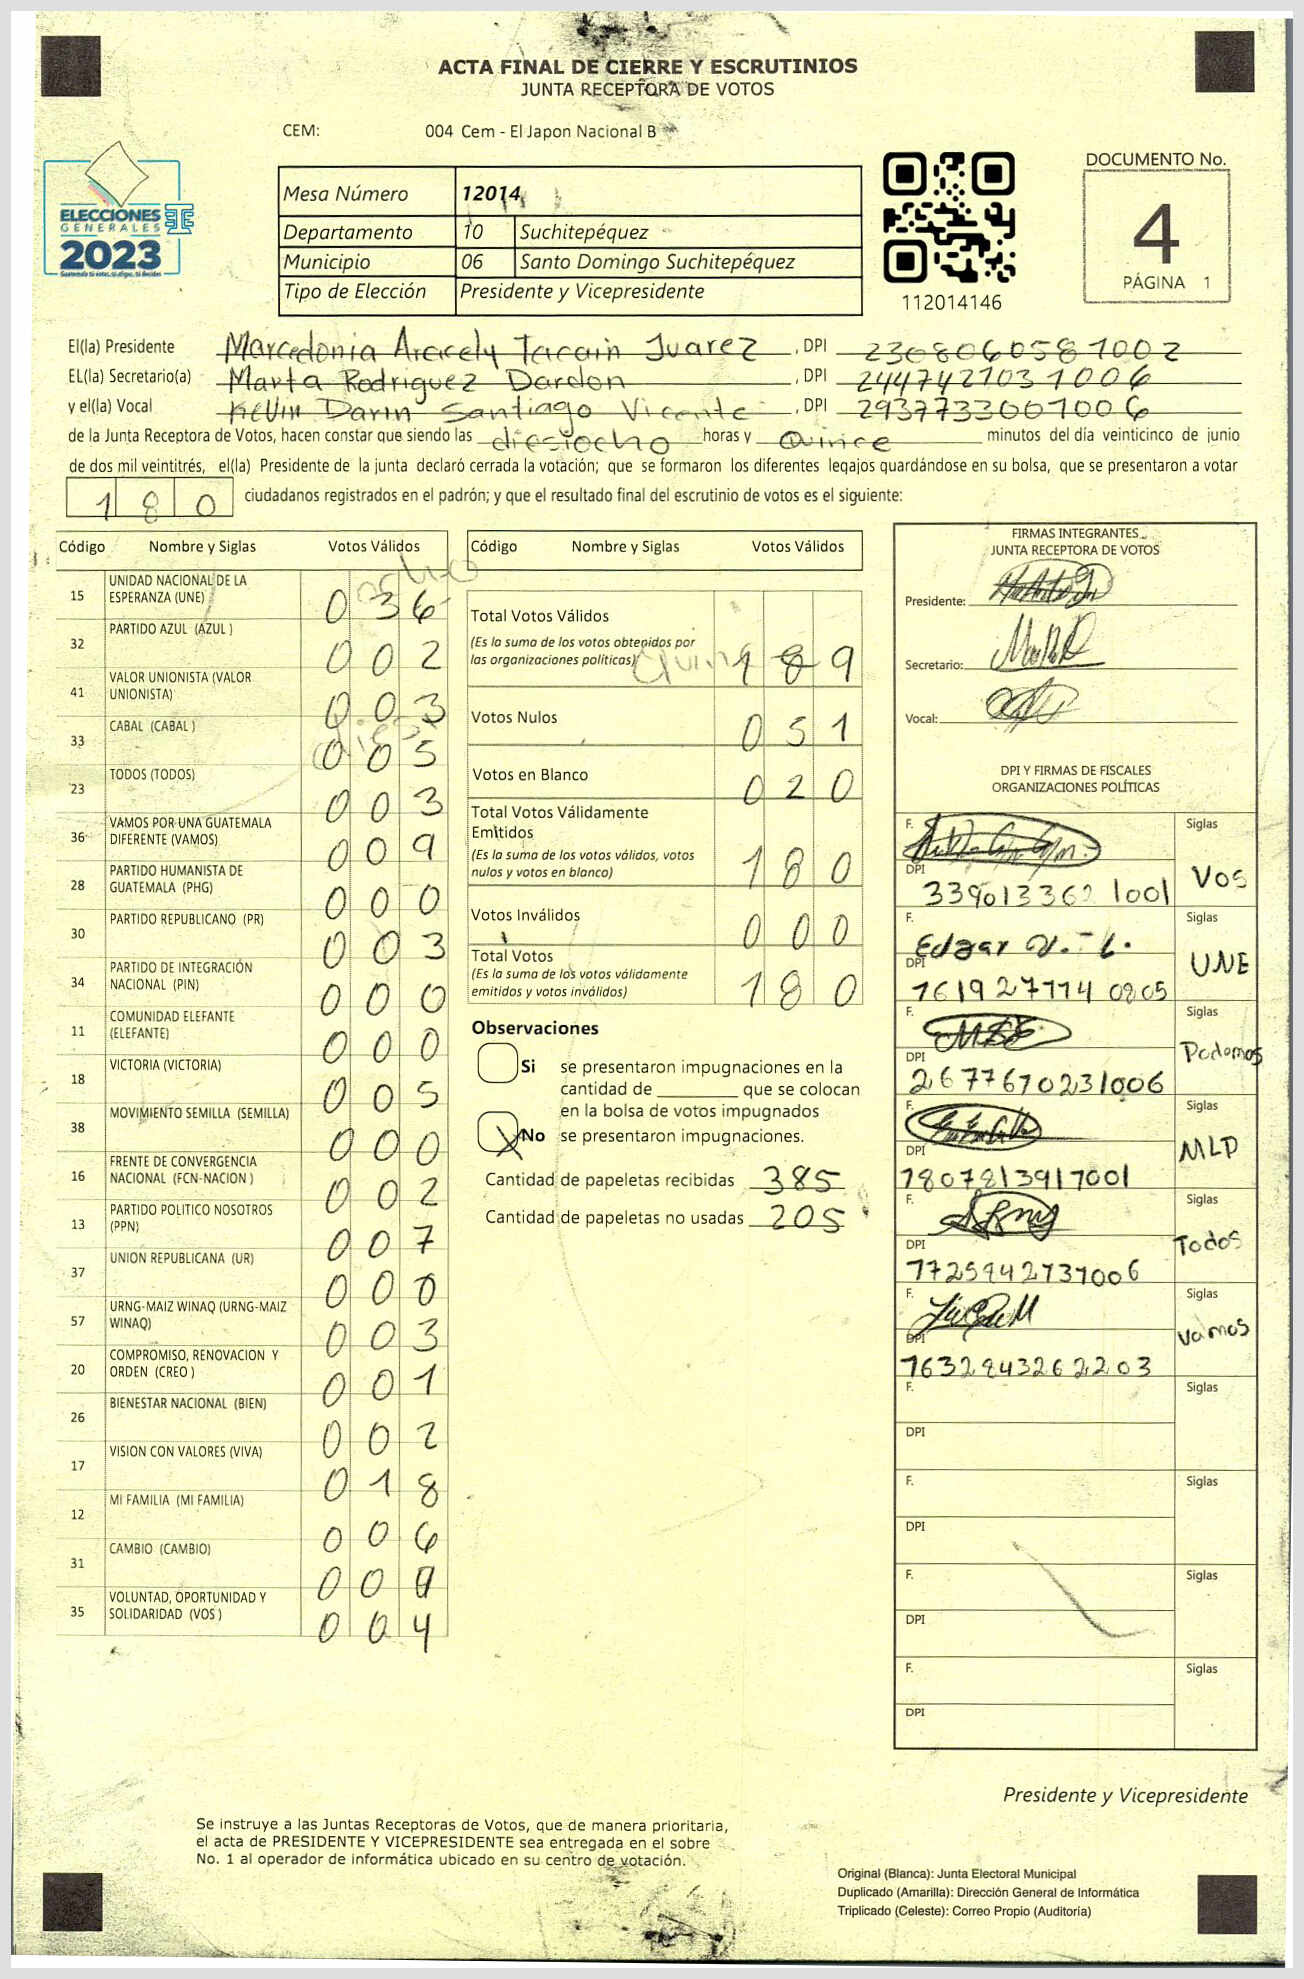 ACTA FINAL DE CIERRE Y ESCRUTINIOS
JUNTA RECEPTORA DE VOTOS
CEM: 004 Cem - El Japon Nacional B
ELECCIONES
GENERALES
2023
Mesa Número 12014
Departamento 10 Suchitepéquez
Municipio 06 Santo Domingo Suchitepéquez
Tipo de Elección Presidente y Vicepresidente
112014146
DOCUMENTO No.
4
PÁGINA 1
El(la) Presidente Marcedonia Aracely Tacain Juarez , DPI 2308060581002
EL(la) Secretario(a) Marta Rodriguez Dardon , DPI 2447421031006
y el(la) Vocal Kelvin Darin Santiago Vicente , DPI 2937733001006
de la Junta Receptora de Votos, hacen constar que siendo las diesiocho horas y Quince minutos del día veinticinco de junio
de dos mil veintitrés, el(la) Presidente de la junta declaró cerrada la votación; que se formaron los diferentes legajos guardándose en su bolsa, que se presentaron a votar
180 ciudadanos registrados en el padrón; y que el resultado final del escrutinio de votos es el siguiente:
Código Nombre y Siglas Votos Válidos
15 UNIDAD NACIONAL DE LA ESPERANZA (UNE) 0 3 6
32 PARTIDO AZUL (AZUL ) 0 0 2
41 VALOR UNIONISTA (VALOR UNIONISTA) 0 0 3
33 CABAL (CABAL ) 0 0 5
23 TODOS (TODOS) 0 0 3
36 VAMOS POR UNA GUATEMALA DIFERENTE (VAMOS) 0 0 9
28 PARTIDO HUMANISTA DE GUATEMALA (PHG) 0 0 0
30 PARTIDO REPUBLICANO (PR) 0 0 3
34 PARTIDO DE INTEGRACIÓN NACIONAL (PIN) 0 0 0
11 COMUNIDAD ELEFANTE (ELEFANTE) 0 0 0
18 VICTORIA (VICTORIA) 0 0 5
38 MOVIMIENTO SEMILLA (SEMILLA) 0 0 0
16 FRENTE DE CONVERGENCIA NACIONAL (FCN-NACION ) 0 0 2
13 PARTIDO POLITICO NOSOTROS (PPN) 0 0 7
37 UNION REPUBLICANA (UR) 0 0 0
57 URNG-MAIZ WINAQ (URNG-MAIZ WINAQ) 0 0 3
20 COMPROMISO, RENOVACION Y ORDEN (CREO ) 0 0 1
26 BIENESTAR NACIONAL (BIEN) 0 0 2
17 VISION CON VALORES (VIVA) 0 1 8
12 MI FAMILIA (MI FAMILIA) 0 0 6
31 CAMBIO (CAMBIO) 0 0
35 VOLUNTAD, OPORTUNIDAD Y SOLIDARIDAD (VOS ) 0 0 4
Código Nombre y Siglas Votos Válidos
Total Votos Válidos
(Es la suma de los votos obtenidos por
las organizaciones políticas) 1 9
Votos Nulos 0 5 1
Votos en Blanco 0 2 0
Total Votos Válidamente
Emitidos
(Es la suma de los votos válidos, votos
nulos y votos en blanco) 1 8 0
Votos Inválidos 0 0 0
Total Votos
(Es la suma de los votos válidamente
emitidos y votos inválidos) 1 8 0
Observaciones
Si se presentaron impugnaciones en la
cantidad de ________ que se colocan
en la bolsa de votos impugnados
X No se presentaron impugnaciones.
Cantidad de papeletas recibidas 385
Cantidad de papeletas no usadas 205
FIRMAS INTEGRANTES
JUNTA RECEPTORA DE VOTOS
Presidente:
Secretario:
Vocal:
DPI Y FIRMAS DE FISCALES
ORGANIZACIONES POLÍTICAS
F. Siglas
DPI 3390133621001 VOS
F. Edgar V. L. Siglas
DPI 1619277140805 UNE
F. Siglas
DPI 2677670231006 Podemos
F. Siglas
DPI 1807813917001 MLP
F. Siglas
DPI 1725942731006 Todos
F. Siglas
DPI 1632843262203 Vamos
F. Siglas
DPI
F. Siglas
DPI
F. Siglas
DPI
F. Siglas
DPI
Presidente y Vicepresidente
Se instruye a las Juntas Receptoras de Votos, que de manera prioritaria,
el acta de PRESIDENTE Y VICEPRESIDENTE sea entregada en el sobre
No. 1 al operador de informática ubicado en su centro de votación.
Original (Blanca): Junta Electoral Municipal
Duplicado (Amarilla): Dirección General de Informática
Triplicado (Celeste): Correo Propio (Auditoria)